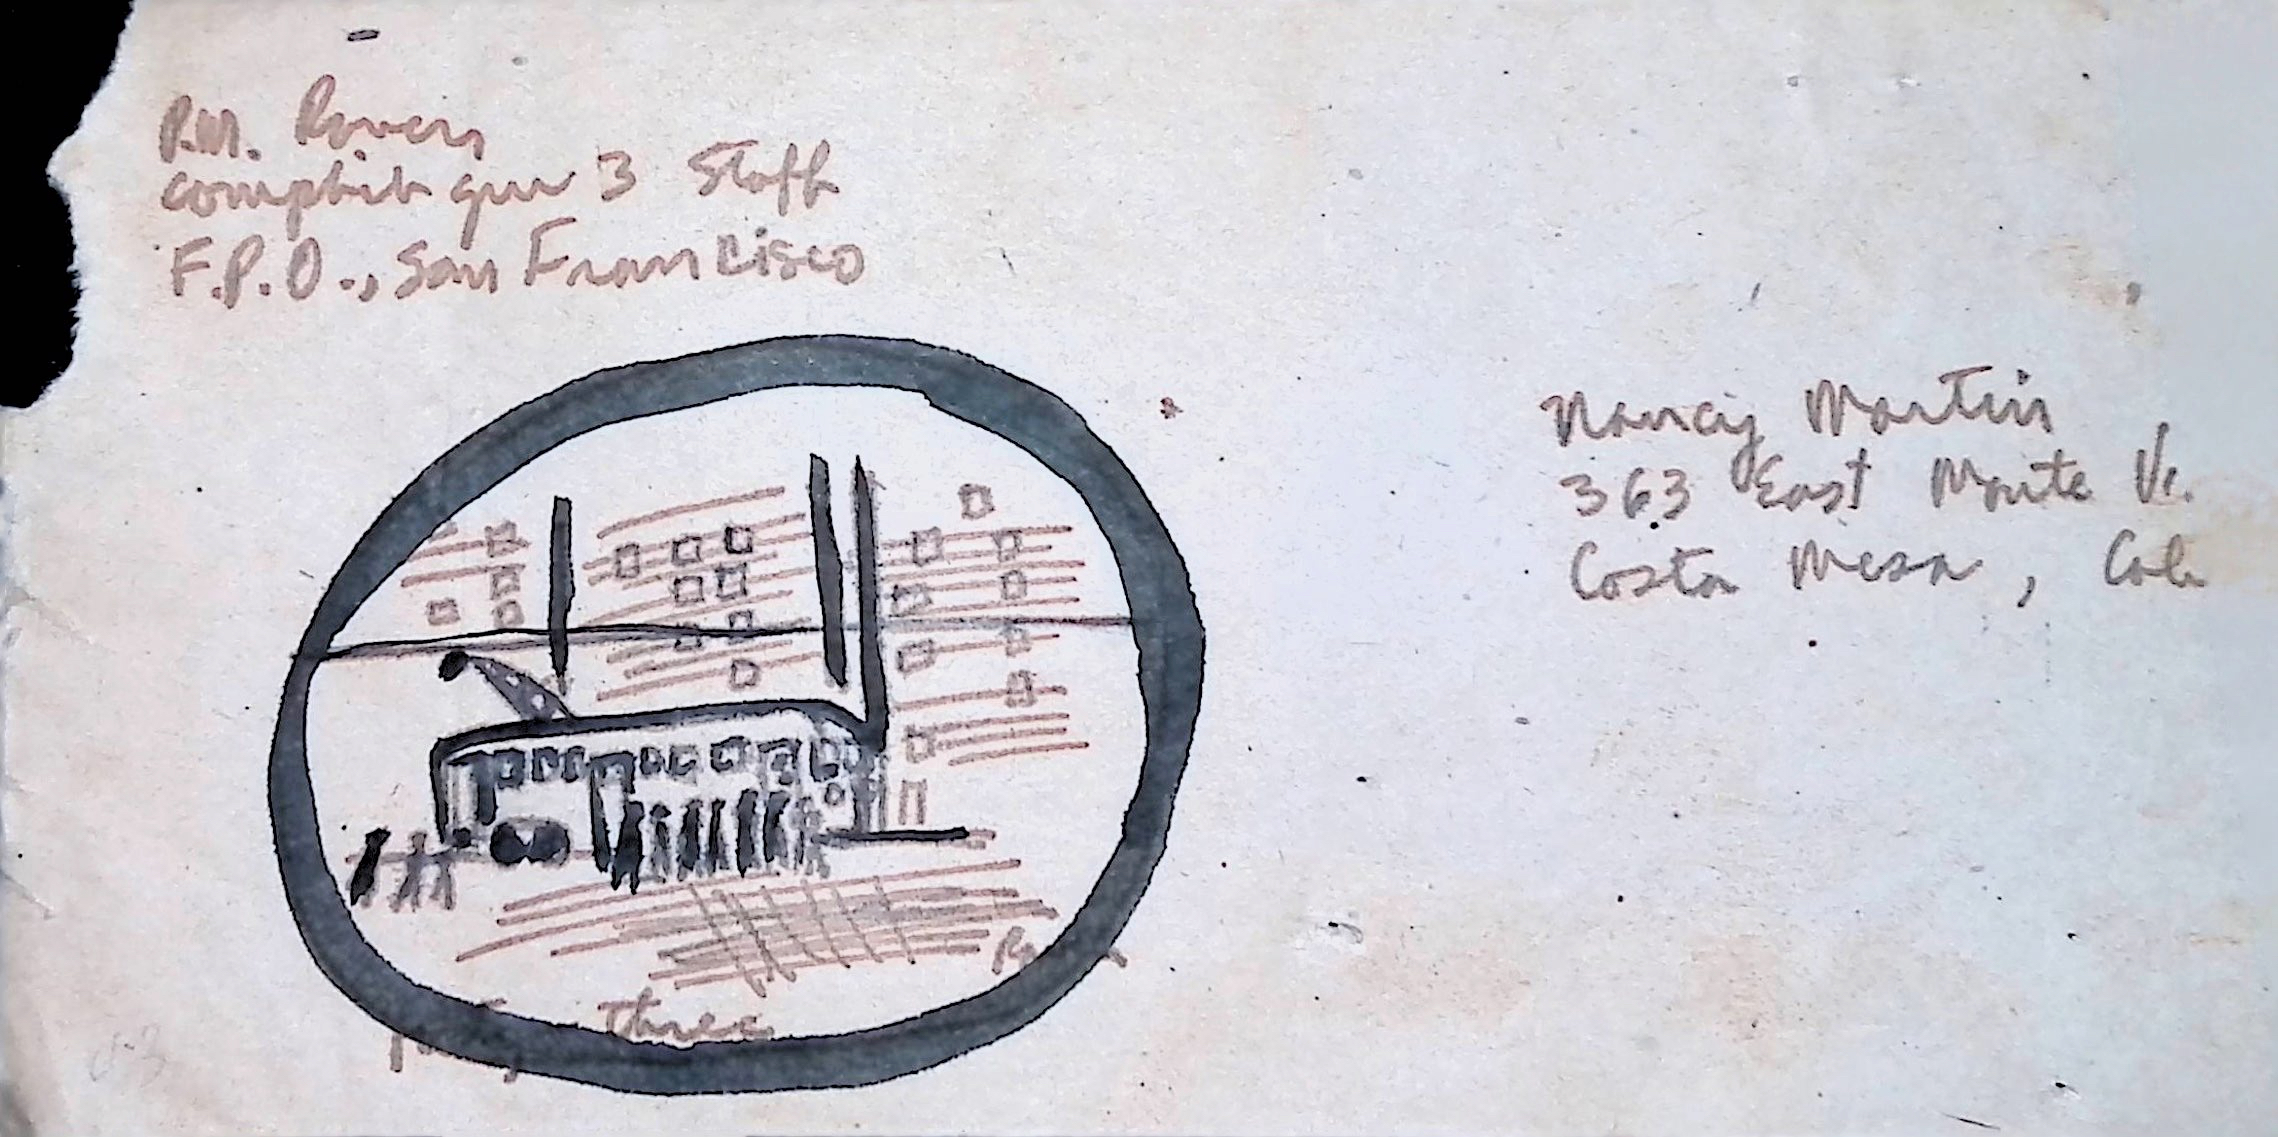 P.M. Rovers
comphib gru 3 Staff
F.P.O., San Francisco
Nancy Martin
363 East Monte Vi.
Costa Mesa, Cali
Three